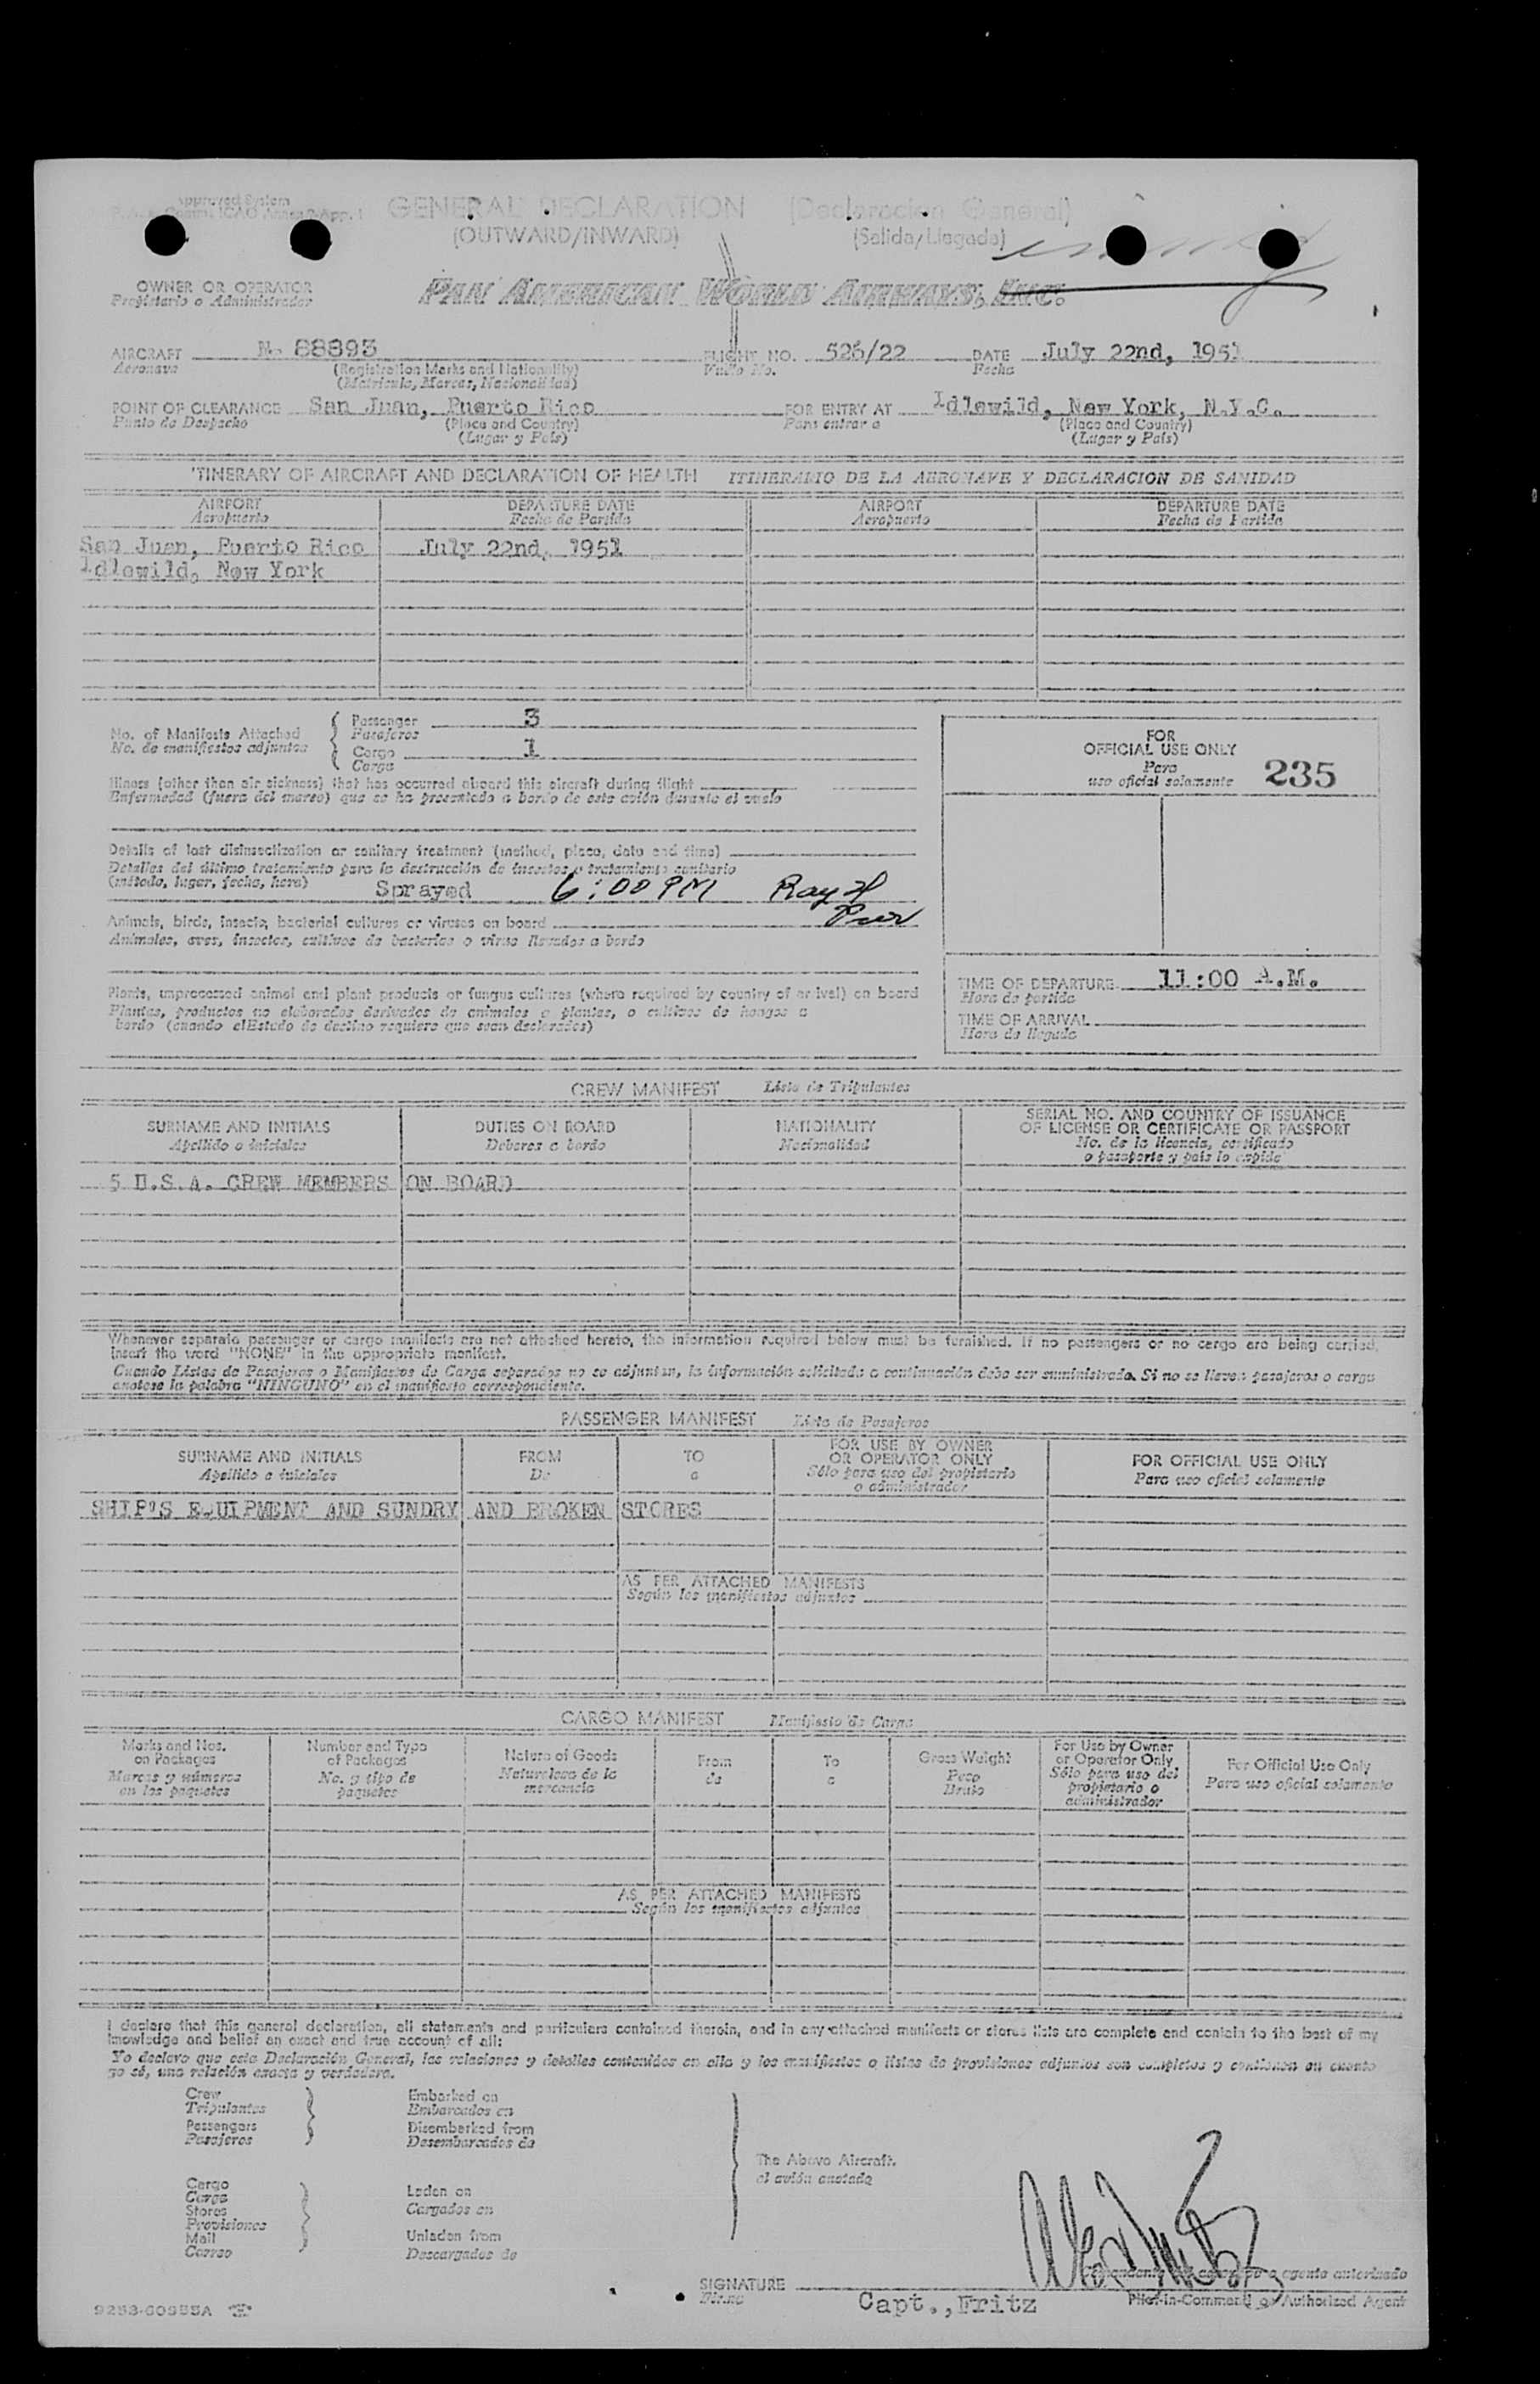 Approved System
GENERAL DECLARATION (Declaracion General)
(OUTWARD/INWARD) (Salida/Llegada)
OWNER OR OPERATOR
Propietario o Administrador
PAN AMERICAN WORLD AIRWAYS, INC.
AIRCRAFT N- 88893 FLIGHT NO. 526/22 DATE July 22nd, 1951
Aeronave (Registration Marks and Nationality) Vuelo No. Fecha
(Matricula, Marcas, Nacionalidad)
POINT OF CLEARANCE San Juan, Puerto Rico FOR ENTRY AT Idlewild, New York, N.Y.C.
Punto de Despacho (Place and Country) Para entrar a (Place and Country)
(Lugar y País) (Lugar y País)
ITINERARY OF AIRCRAFT AND DECLARATION OF HEALTH ITINERARIO DE LA AERONAVE Y DECLARACION DE SANIDAD
AIRPORT DEPARTURE DATE AIRPORT DEPARTURE DATE
Aeropuerto Fecha de Partida Aeropuerto Fecha de Partida
San Juan, Puerto Rico July 22nd, 1951
Idlewild, New York
No. of Manifests Attached
No. de manifiestos adjuntos
Passenger 3
Pasajeros
Cargo 1
Carga
FOR
OFFICIAL USE ONLY
Para
uso oficial solamente 235
Illness (other than air sickness) that has occurred aboard this aircraft during flight
Enfermedad (fuera del mareo) que se ha presentado a bordo de este avión durante el vuelo
Details of last disinsectization or sanitary treatment (method, place, date and time)
Detalles del último tratamiento para la destrucción de insectos o tratamiento sanitario
(método, lugar, fecha, hora) Sprayed 6:00 PM Ray H
Animals, birds, insects, bacterial cultures or viruses on board
Animales, aves, insectos, cultivos de bacterias o virus llevados a bordo
Plants, unprocessed animal and plant products or fungus cultures (where required by country of arrival) on board
Plantas, productos no elaborados derivados de animales o plantas, o cultivos de hongos a
bordo (cuando elEstado de destino requiere que sean declarados)
TIME OF DEPARTURE 11:00 A.M.
Hora de partida
TIME OF ARRIVAL
Hora de llegada
CREW MANIFEST Lista de Tripulantes
SURNAME AND INITIALS DUTIES ON BOARD NATIONALITY SERIAL NO. AND COUNTRY OF ISSUANCE
OF LICENSE OR CERTIFICATE OR PASSPORT
Apellido o iniciales Deberes a bordo Nacionalidad No. de la licencia, certificado
o pasaporte y país lo expide
5 U.S.A. CREW MEMBERS ON BOARD
Whenever separate passenger or cargo manifests are not attached hereto, the information required below must be furnished. If no passengers or no cargo are being carried,
insert the word "NONE" in the appropriate manifest.
Cuando Listas de Pasajeros o Manifiestos de Carga separados no se adjuntan, la información solicitada a continuación debe ser suministrada. Si no se llevan pasajeros o carga
anótese la palabra "NINGUNO" en el manifiesto correspondiente.
PASSENGER MANIFEST Lista de Pasajeros
SURNAME AND INITIALS FROM TO FOR USE BY OWNER
OR OPERATOR ONLY FOR OFFICIAL USE ONLY
Apellido e iniciales De a Sólo para uso del propietario
o administrador Para uso oficial solamente
SHIP'S EQUIPMENT AND SUNDRY AND BROKEN STORES
AS PER ATTACHED MANIFESTS
Según los manifiestos adjuntos
CARGO MANIFEST Manifiesto de Carga
Marks and Nos.
on Packages
Marcas y números
en los paquetes
Number and Type
of Packages
No. y tipo de
paquetes
Nature of Goods
Naturaleza de la
mercancía
From
de
To
a
Gross Weight
Peso
Bruto
For Use by Owner
or Operator Only
Sólo para uso del
propietario o
administrador
For Official Use Only
Para uso oficial solamente
AS PER ATTACHED MANIFESTS
Según los manifiestos adjuntos
I declare that this general declaration, all statements and particulars contained therein, and in any attached manifests or stores lists are complete and contain to the best of my
knowledge and belief an exact and true account of all:
Yo declaro que esta Declaración General, las relaciones y detalles contenidos en ella y los manifiestos o listas de provisiones adjuntos son completos y contienen en cuanto
yo sé, una relación exacta y verdadera.
Crew Embarked on
Tripulantes Embarcados en
Passengers Disembarked from
Pasajeros Desembarcados de
The Above Aircraft.
el avión anotado
Cargo
Carga Laden on
Stores Cargados en
Provisiones
Mail Unladen from
Correo Descargados de
SIGNATURE
Firma Capt.,Fritz
o agente autorizado
Pilot-in-Command or Authorized Agent
9253-60985A